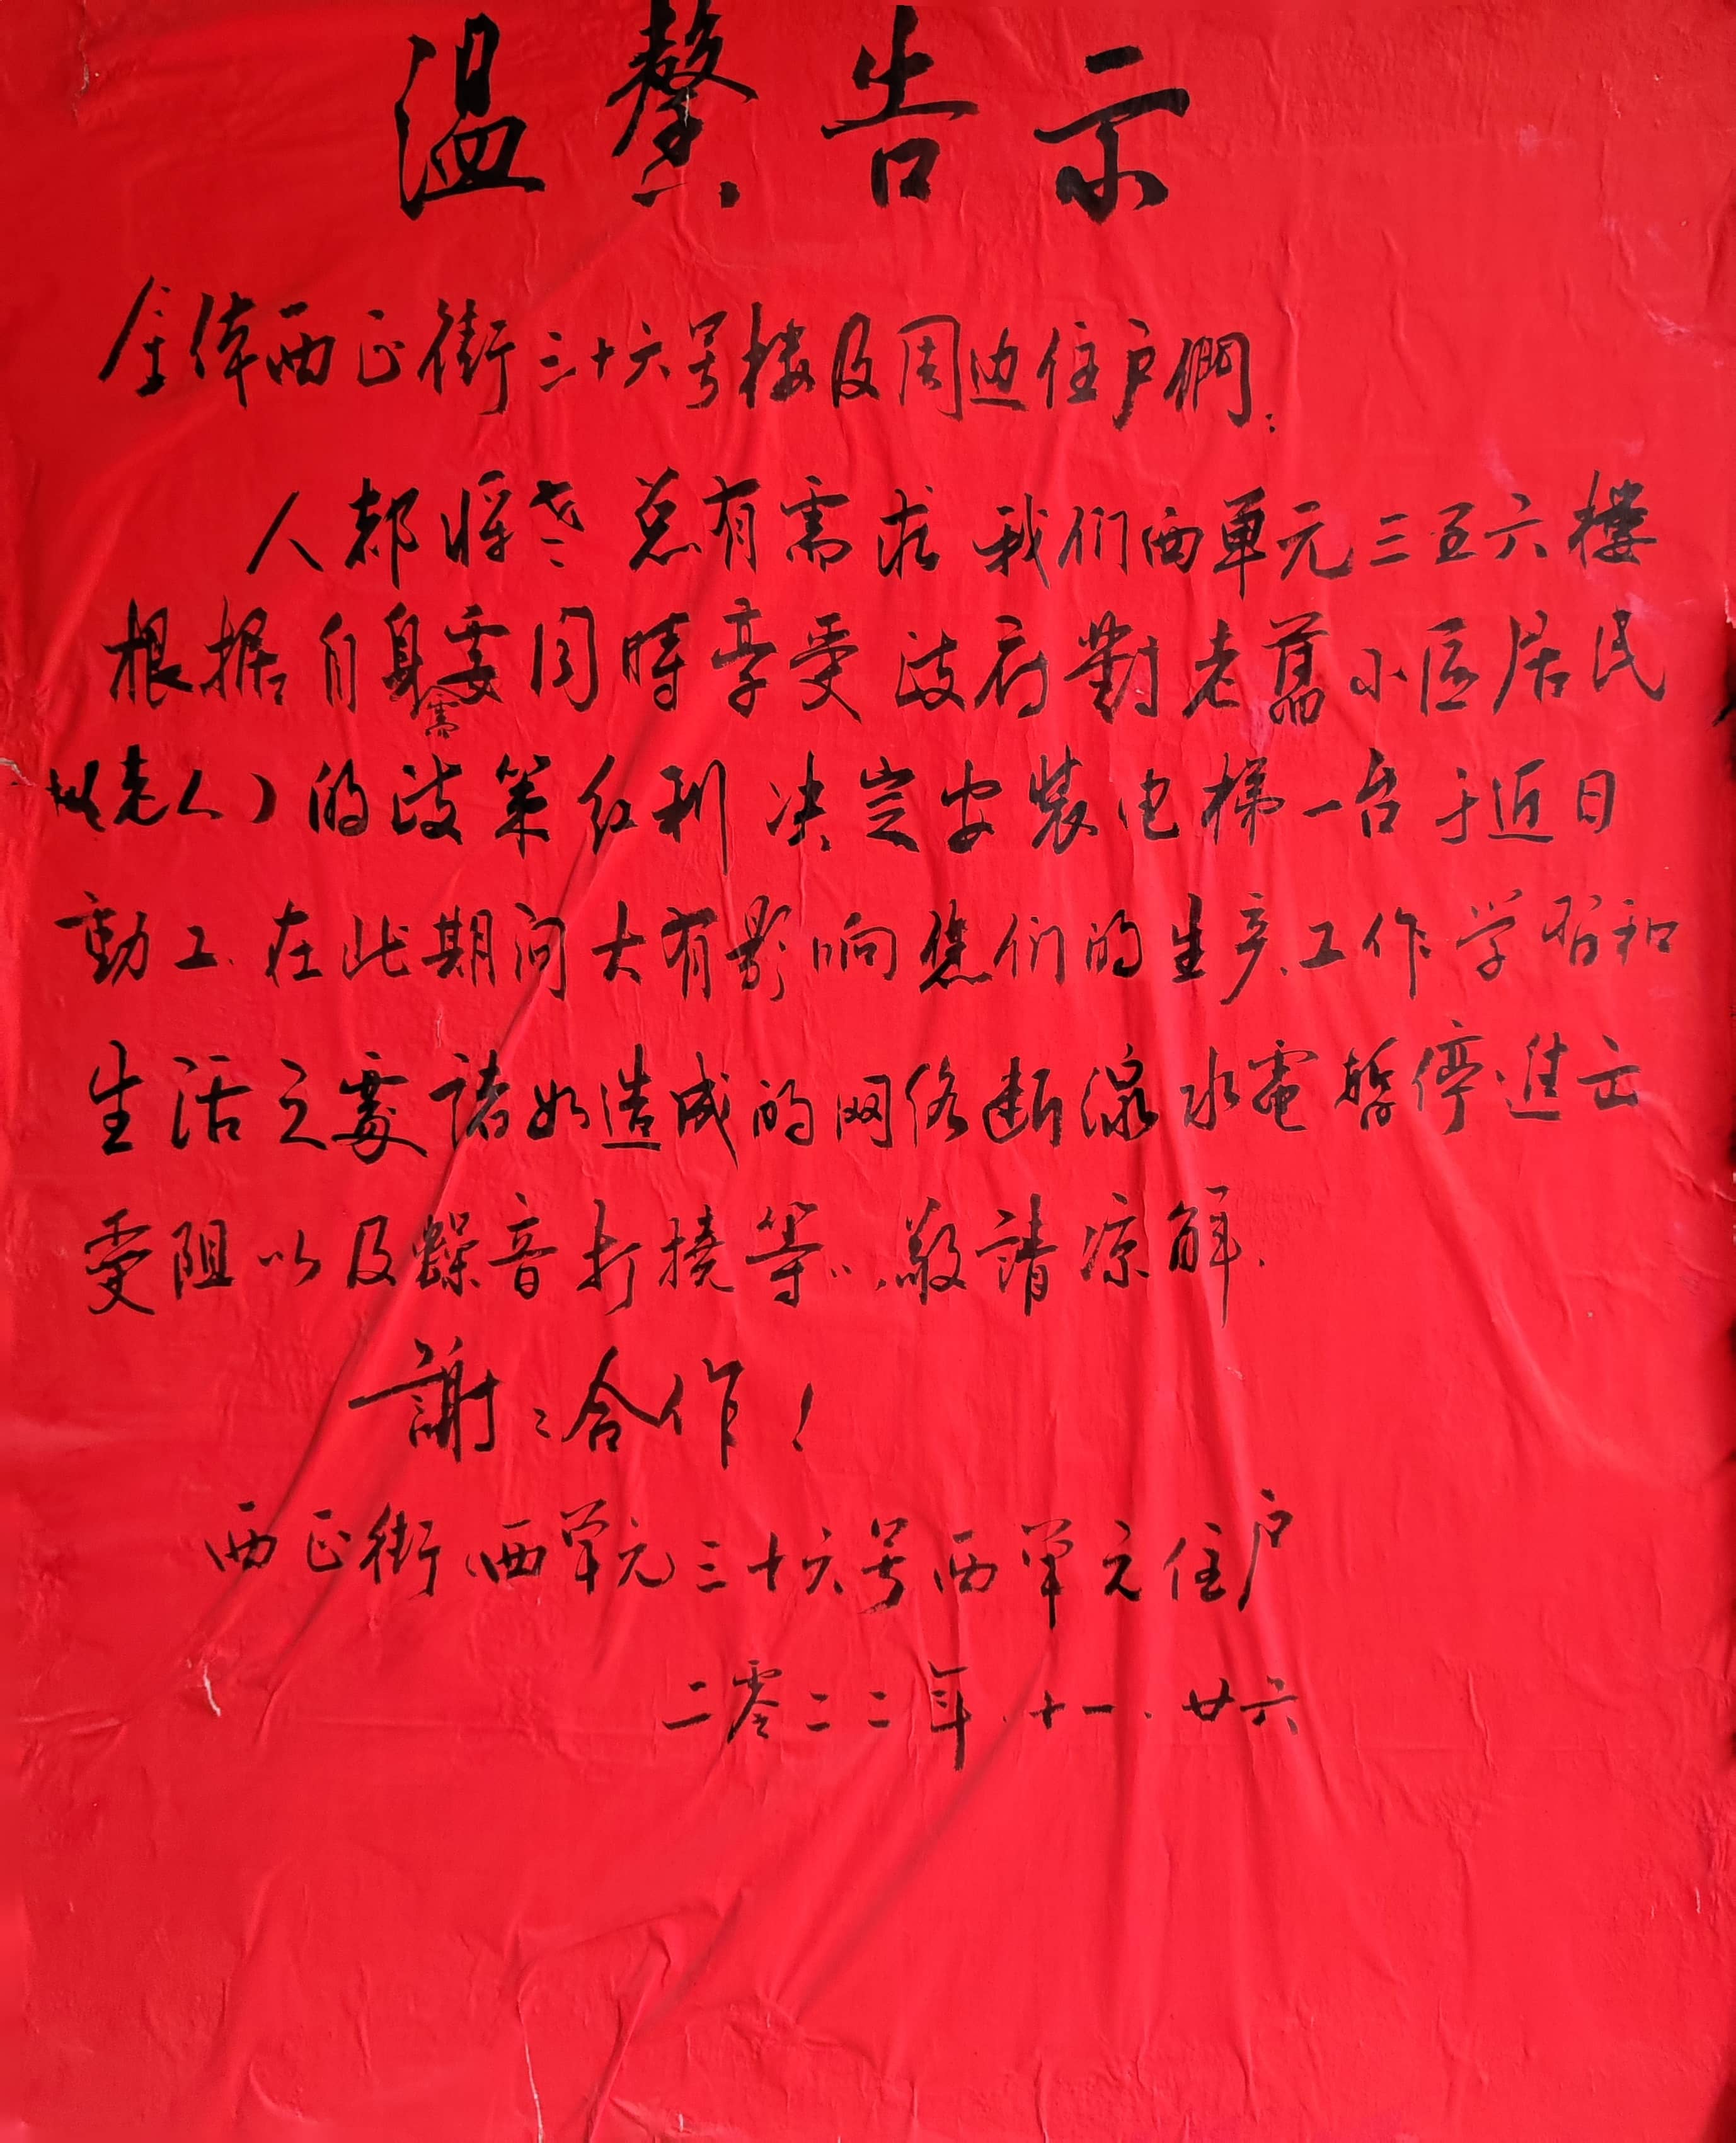 温馨告示
全体西正街三十六号楼及周边住户們:
人都将老总有需求 我们西單元三五六樓
根据自身需要同時享受政府對老舊小区居民
老人)的政策红利 决定安装电梯一台于近日
動工.在此期间大有影响您们的生产.工作学習和
生活之處諸如造成的网络断線水電暫停進出
受阻以及噪音打撓等...敬請凉解.
謝:合作!
西正街 西单元三十六号西单元住户
二零二二年.十一.廿六